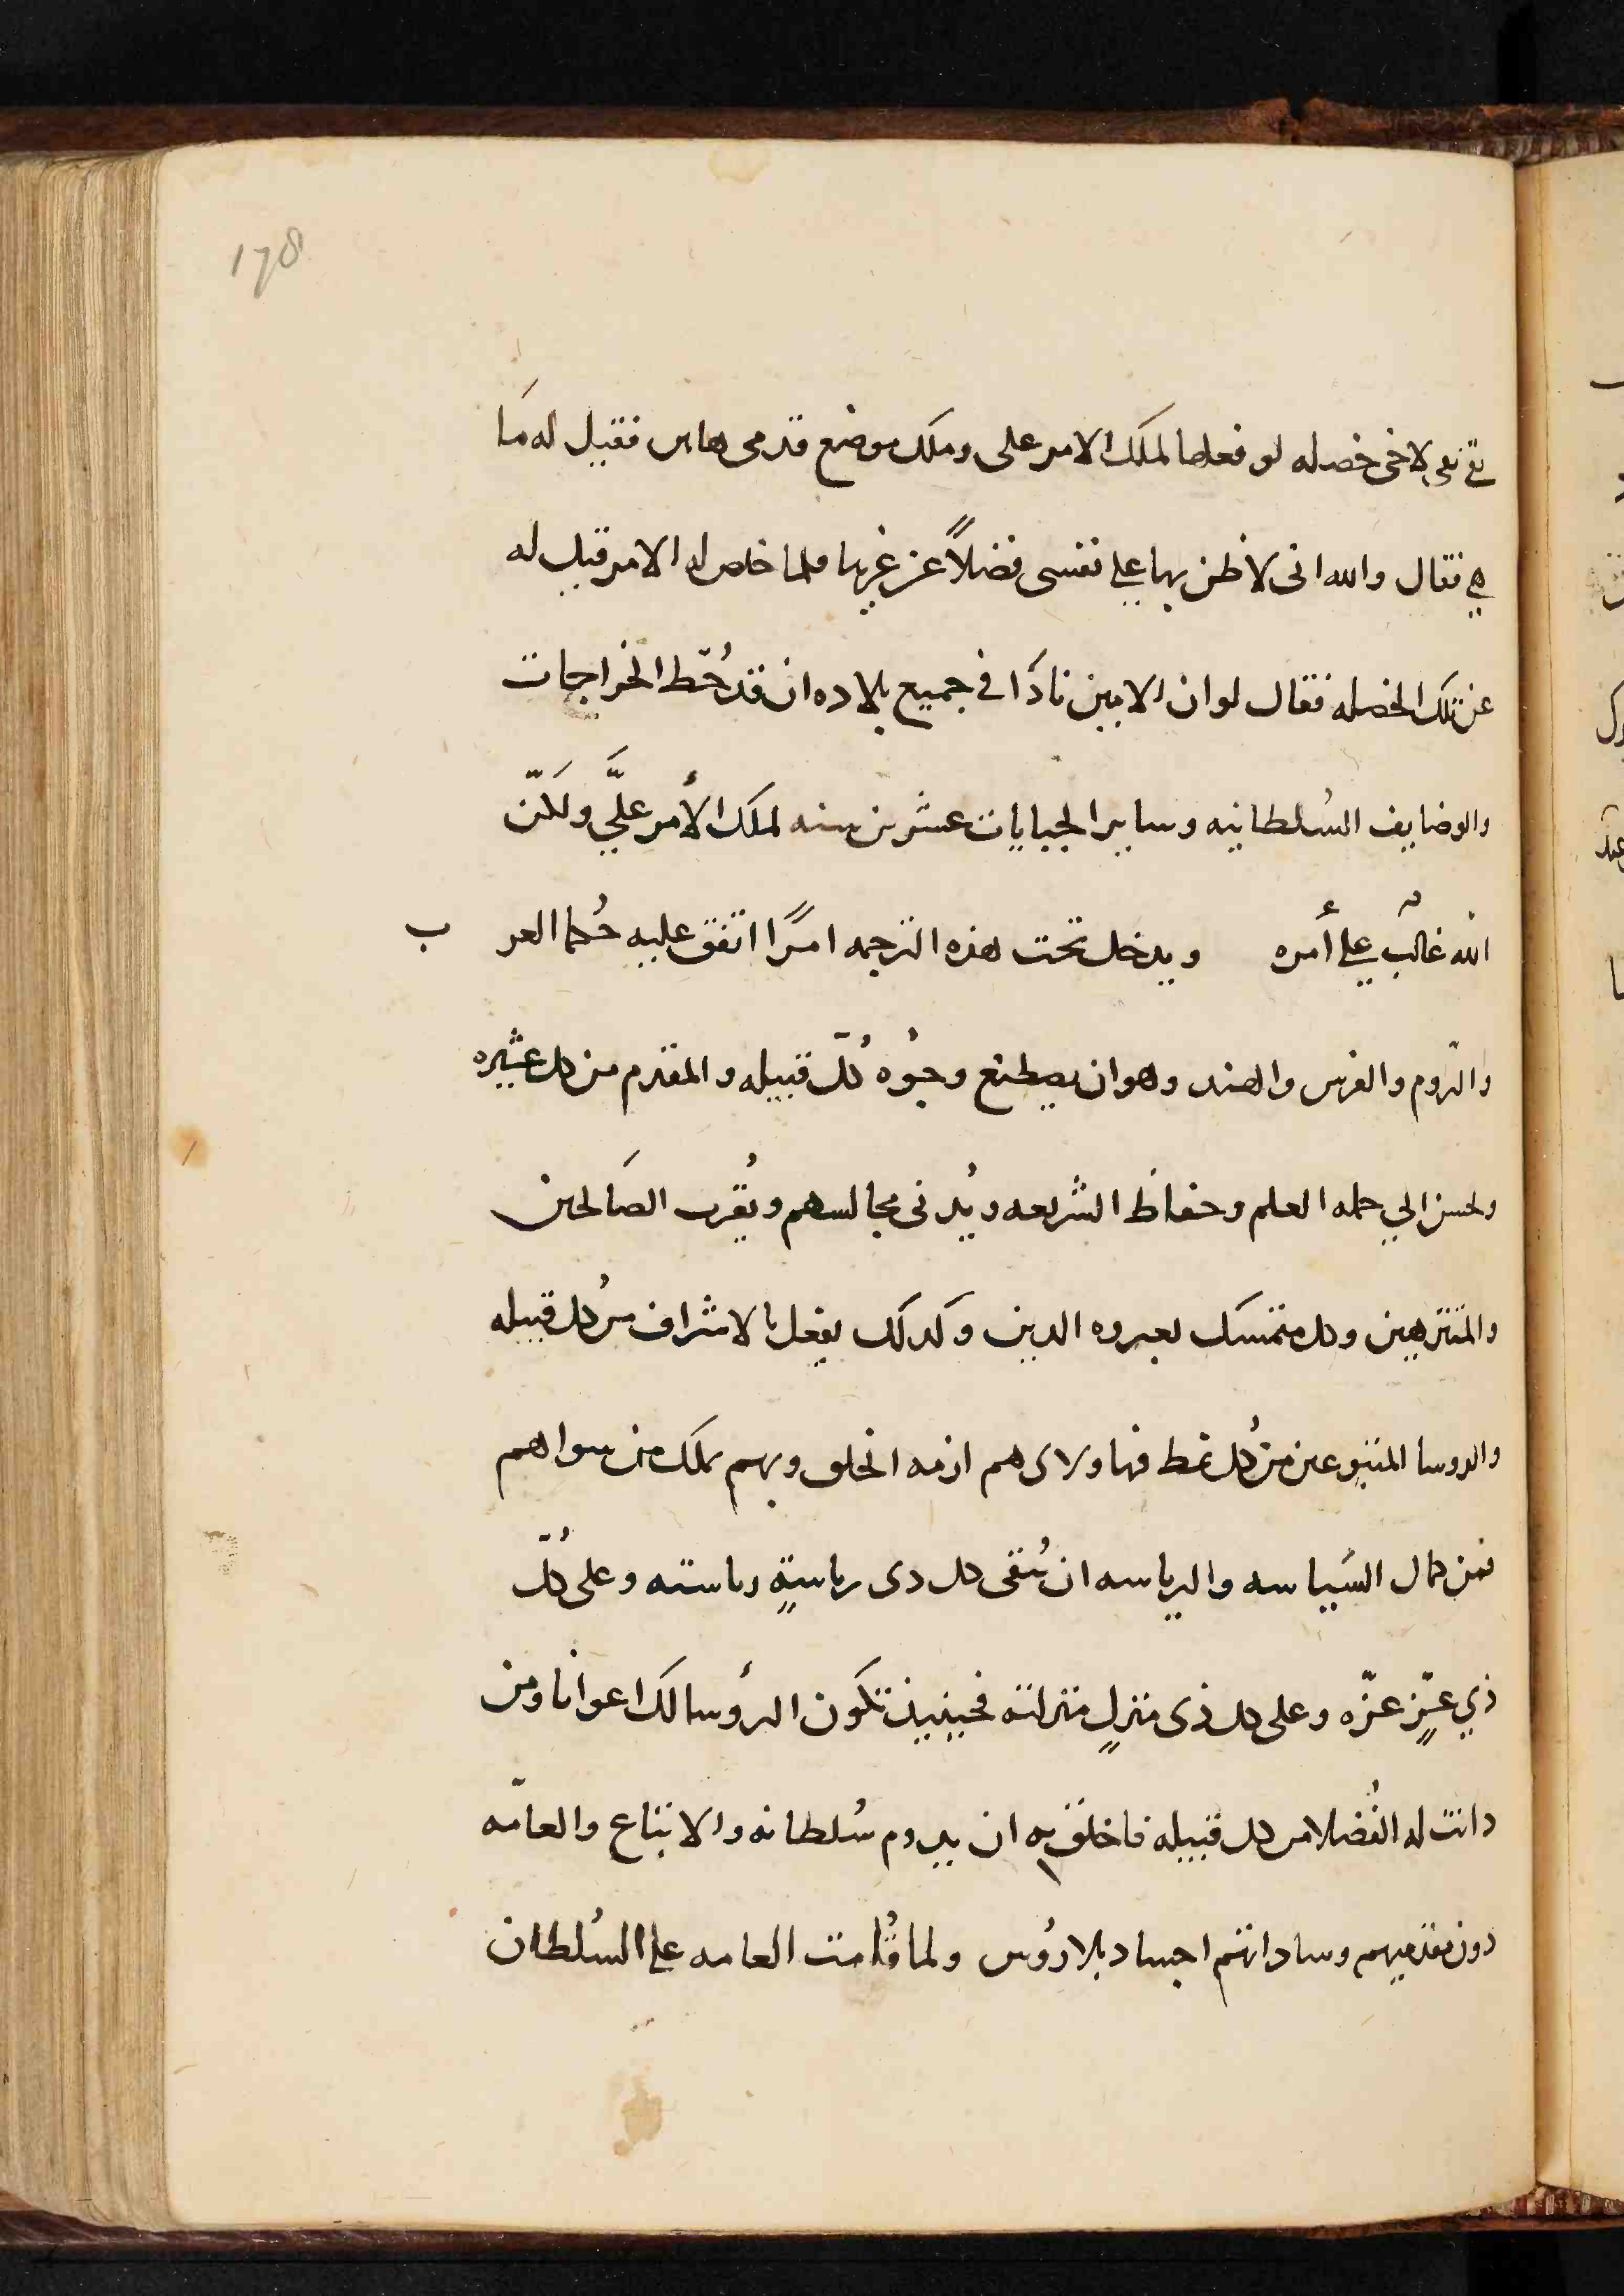 178
بقى بقى لاخى خصله لو فعلها لملك الامر على وملك موضع قدمى هاتين فقيل له مَا
هي فقال والله انى لاظن بها علي نفسى فضلاً عن غيرها فلما خلص له الامر قيل له
عن تلك الخصله فقال لو ان الامين نادَا في جميع بلاده ان قد حُطّ الخراجات
والوضايف السُلطانيه وساير الجبايات عشرين سنه لملك الأمر علىَّ ولكنّ
الله غالبٌ علي أمره ويدخل تحت هذه الترجمه امرًا اتفق عليه حُكما العر ب
والرّوم والفرس والهند وهو ان يصطنع وجُوه كُلّ قبيله والمقدم من كل عشيره
وحسن الي حمله العلم وحفاظ الشريعه ويُدنى مجالسهم ويُقرب الصَالحين
والمتنزهين وكل متمسك بعروه الدين وكدلك يفعل بالاشراف من كُل قبيله
والروسا المتبوعين من كُل نمط فهاولاى هم ازمه الخلق وبهم يملك من سواهم
فمن كمال السّياسه والرياسه ان يُبقى كل دى رياسةٍ رياسته وعلى كُلّ
ذي عزٍّ عزّه وعلى كل ذى منزلٍ منزلته فحينيذ تكون الرؤسا لك اعوانا ومن
دانت له الفُضلا من كل قبيله فاخلق به ان يدوم سُلطانه والاتباع والعامّه
دون مقدميهم وساداتهم اجساد بلا روُس ولما قامت العامه علي السُلطان